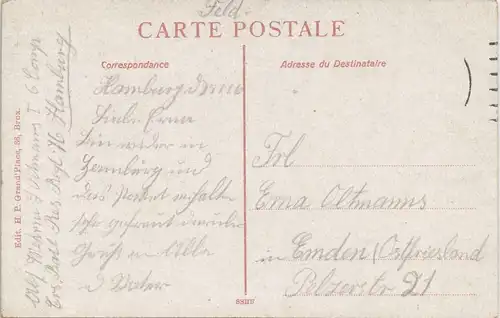 Feld
CARTE POSTALE
Correspondance
Hamburg d
Liebe Erna
bin wieder in
Hamburg und
das Packet erhalten
sehr gefreut darüber
Gruß an Alle
d Vater
Adresse du Destinataire
Frl
Erna Oltmanns
in Emden (Ostfriesland
Pelzerstr 21
Oltmanns I 6 Comp
Ers Batl Res 76 Hamburg
Edit. H P. Grand'Place, 36, Brux.